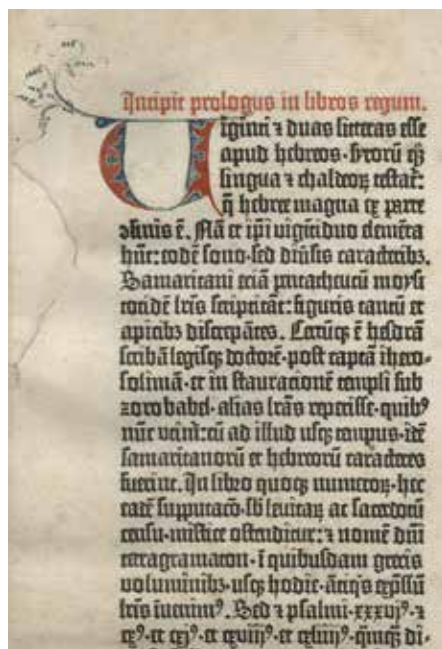 Incipit prologus in libros regum.
Uiginti ⁊ duas litteras esse
apud hebreos · syrorū qꝫ
lingua ⁊ chaldeoꝝ testat᷑:
q̄ hebree magna ex parte
ꝯfinis ē. Nā et ip̄i vigītiduo elemēta
hn̄t: eodē sono · sed diūsis caracteribꝫ.
Samaritani etiā pentatheucū moysi
totidē lr̄is scriptitāt: figuris tantū et
apicibꝫ discrepātes. Certūqꝫ ē hesdrā
scribā legisqꝫ doctorē · post captā ihero-
solimā · et in stauracionē templi sub
zorobabel · alias lr̄as repperisse · quibꝰ
nūc vtim᷑: cū ad illud usqꝫ tempus · idē
samaritanorū et hebreorū caracteres
fuerint. In libro quoqꝫ numeroꝝ · hec
eadē supputacō · sb̄ leuitaꝝ ac sacerdotū
censu · mistice ostenditur: ⁊ nomē dn̄i
tetragramaton · ī quibusdam grecis
voluminibꝫ · usqꝫ hodie · ātiq̄s exp̄ssū
lr̄is inuenimꝰ. Sed ⁊ psalmi · xxxvjꝰ · ⁊
cxꝰ · et cxjꝰ · et cxviijꝰ · et cxliiijꝰ · di-